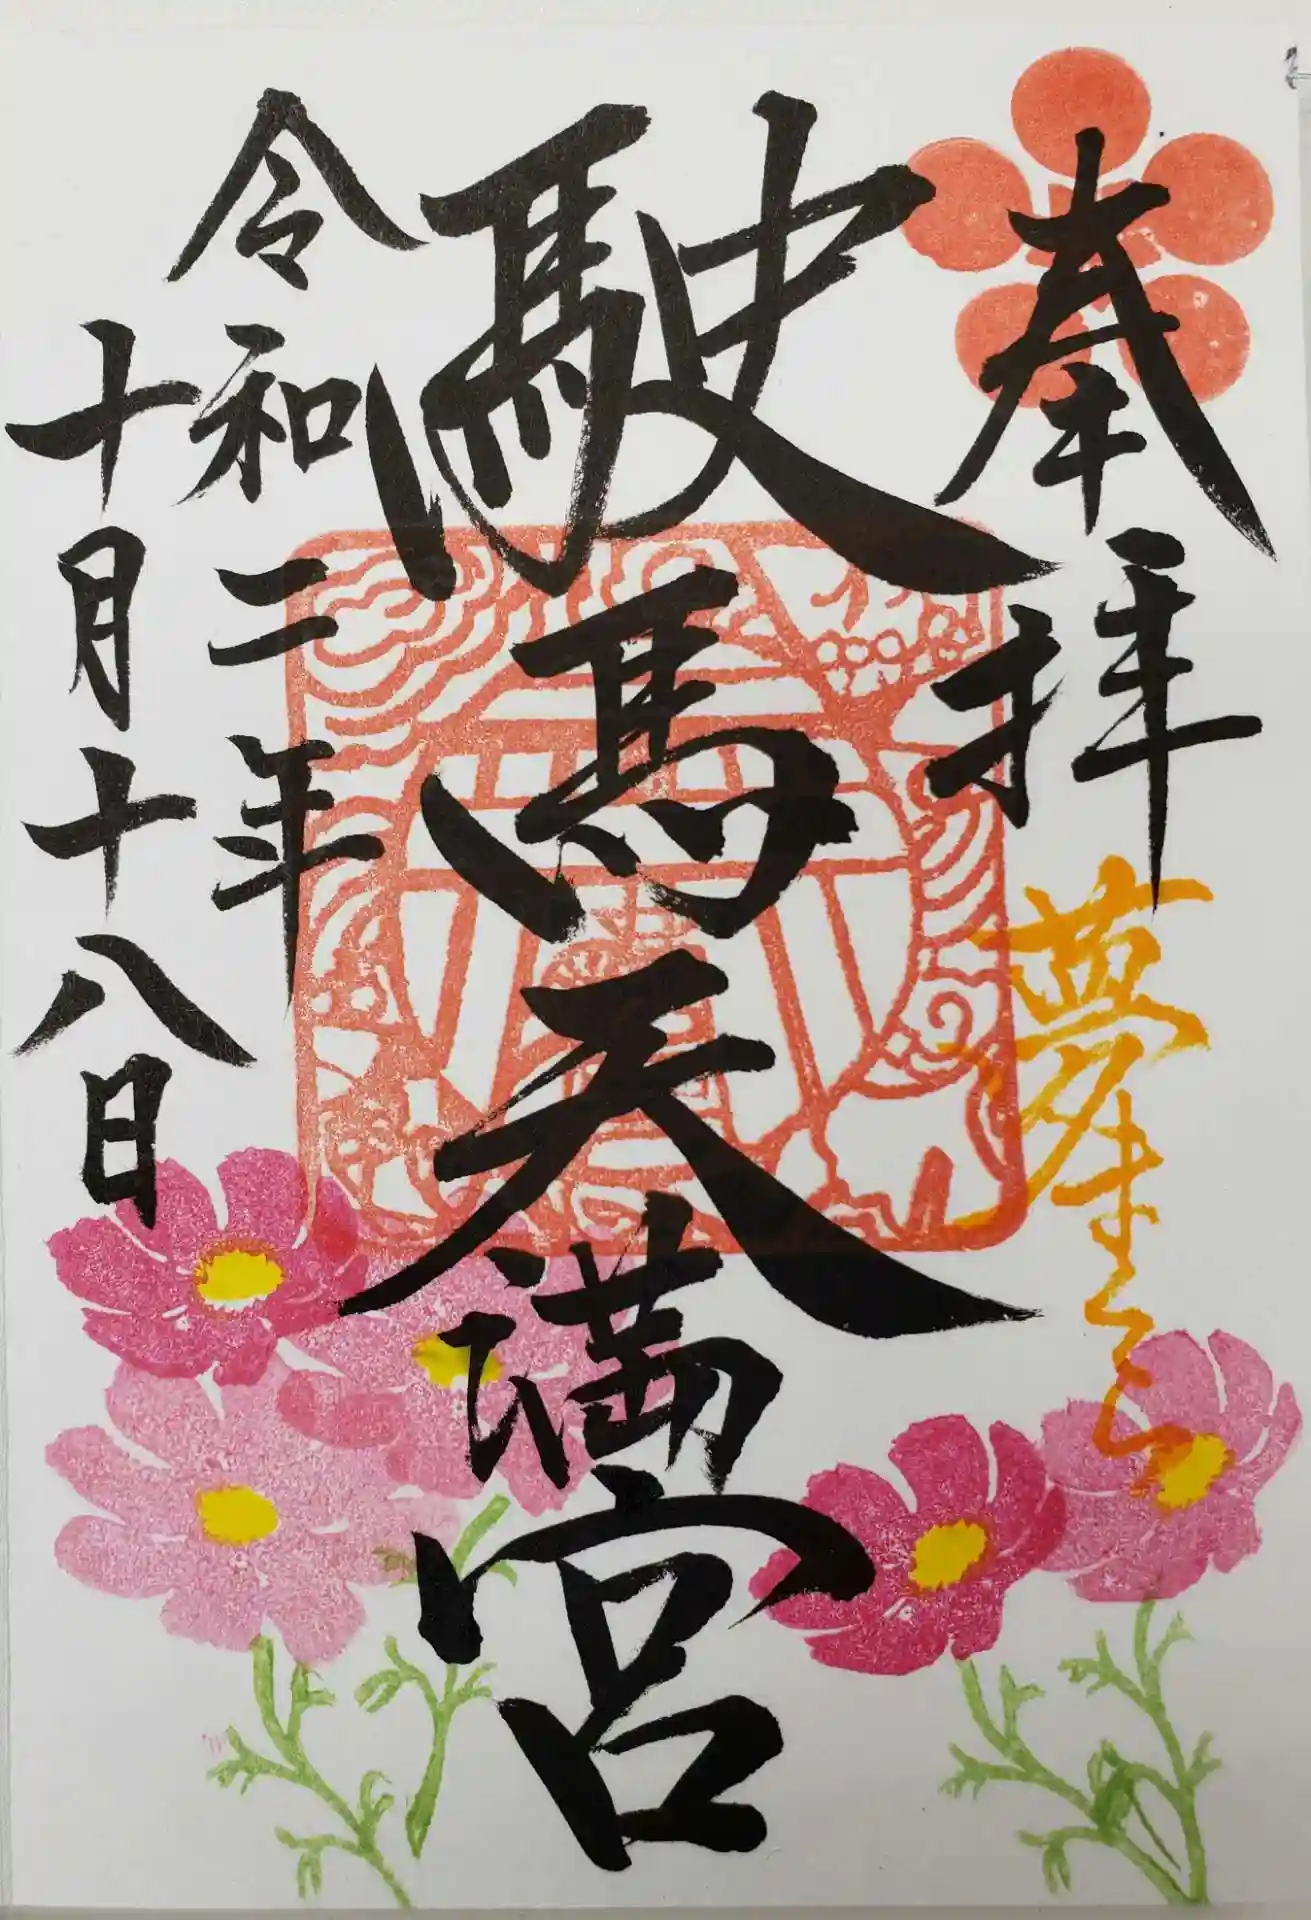 奉拝
夢
駛馬天満宮
令和二年
十月十八日